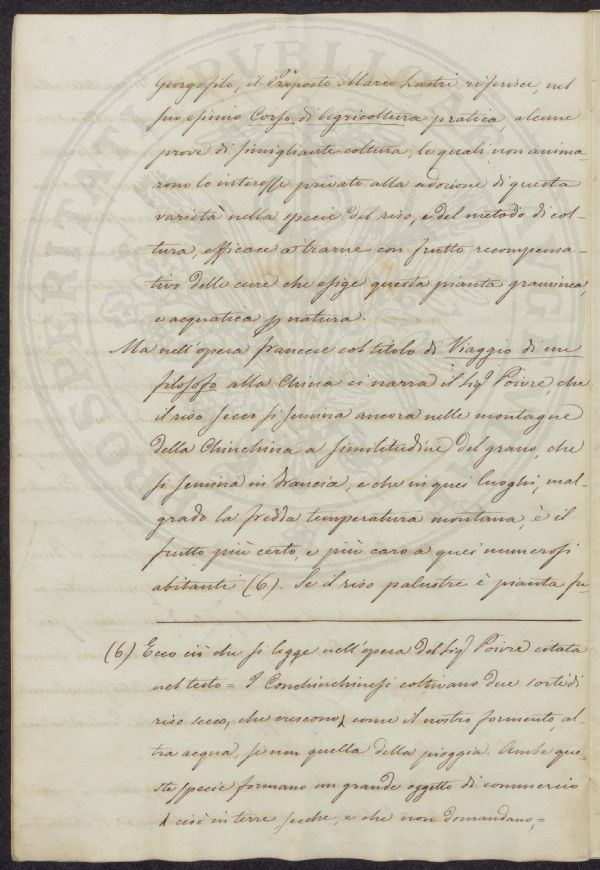 Georgofilo, il Proposto Marco Lastri riferisce, nel
suo esimio Corso di Agricoltura pratica, alcune
prove di simigliante coltura, le quali non anima-
rono lo interesse privato alla adozione di questa
varietà nella specie del riso, e del metodo di col-
tura, efficace a trarne con frutto recompensa-
tivo delle cure che esige questa pianta graminea,
e acquatica p natura.
Ma nell'opera francese col titolo di Viaggio di un
filosofo alla China ci narra il Sigr Poivre, che
il riso secco si semina ancora nelle montagne
della Chinchina a similitudine del grano, che
si semina in Francia, e che in quei luoghi, mal-
grado la fredda temperatura montana, è il
frutto più certo, e più caro a quei numerosi
abitanti (6). Se il riso palustre è pianta fu-
(6) Ecco ciò che si legge nell'opera del Sigr Poivre citata
nel testo = I Conchinchinesi coltivano due sorte di
riso secco, che crescono, come il nostro formento, al-
tra acqua, se non quella della pioggia. Ambe que
ste specie formano un grande oggetto di commercio
cioè in terre secche, e che non domandano,=
PROSPERITATI PVBLICAE AVGENDAE